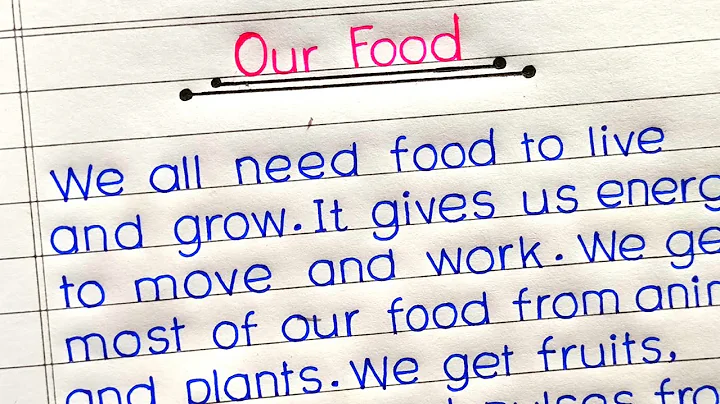 Our Food
We all need food to live
and grow. It gives us energ
to move and work. We ge
most of our food from anim
and plants. We get fruits,
pulses fro